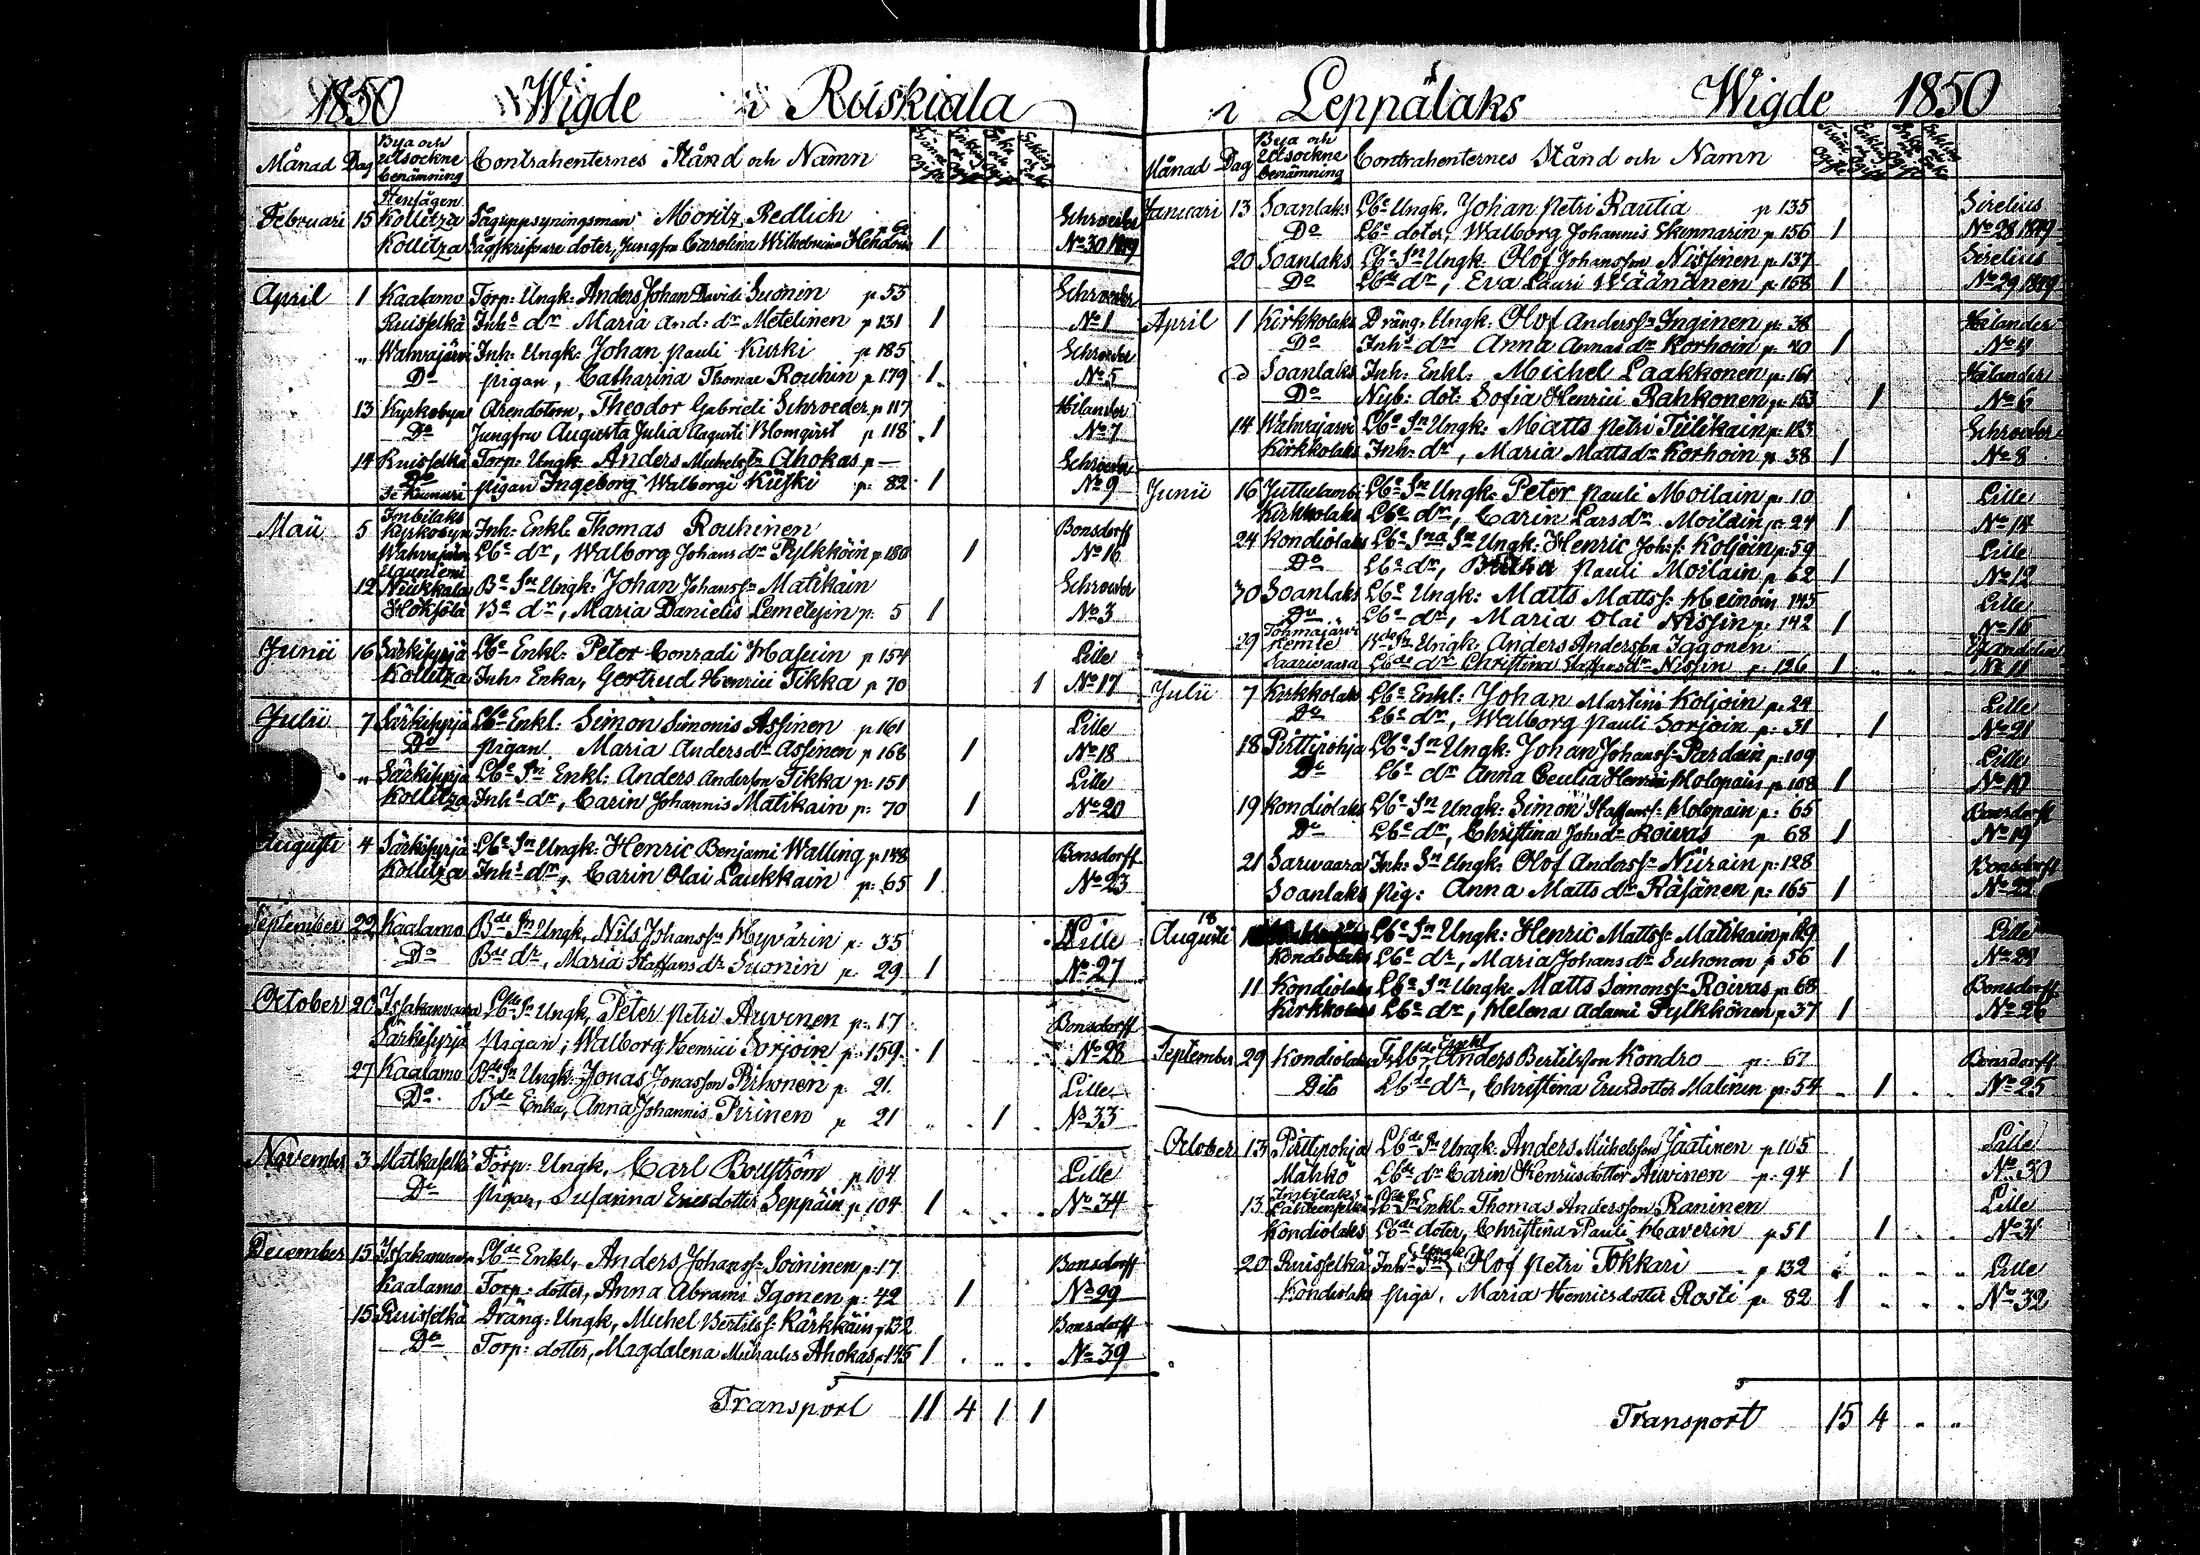 1850 Wigde i Ruskiala
Månad Dag Bya och Utsockne benämning Contrahenternes Stånd och Namn
Februari 15 Kollitza Såguppsyningsman Moritz Redlich Schroeder
Kollitza Sågskrifvare doter, Jungfru Carolina Wilhelmina 1 No 30 1849
April 1 Kaalamo Torp: Ungk: Anders Johan Davidi Suonin p 53 Schroeder
Ruisselkä Inhs dr Maria And: dr Metelinen p 131 1 No 1
„ Wahvajärvi Inh: Ungk: Johan Pauli Kurki p 185 Schroeder
Do pigan, Catharina Thomae Rouhin p 179 1 No 5
13 Kyrkobyn Theodor Gabrieli Schroeder p 117 Hilander
Do Jungfru Augusta Julia Augusti Blomqvist p 118 1 No 7
14 Ruisselkä Torp: Ungk. Anders Michelss: Ahokas p — Schroeder
Do pigan Ingeborg Walborgi p: 82 1 No 9
Imbilaks
Maii 5 Kyrkobyn Inh: Enkl. Thomas Rouhinen Bonsdorff
Wahvajärvi Lbo dr, Walborg Johans dr Pylkköin p 180 1 No 16
Uguniemi
12 Niukkala Bo Sn Ungk: Johan Johanss: Matikain Schroeder
Hokjölä Bo dr, Maria Danielis Lemetyin p: 5 1 No 3
Junii 16 Särkisyrjä Lbo Enkl: Peter Conradi Hasuin p 154 Lille
Kollitza Inhs Enka, Gertrud Henrici Tikka p 70 1 No 17
Julii 7 Särkisyrjä Lbo Enkl: Simon Simonis Assinen p 161 Lille
Do pigan Maria Anders dr Assinen p 168 1 No 18
„ Särkisyrjä Lbo Sn Enkl: Anders Anderson Tikka p: 151 Lille
Kollitza Inhs dr, Carin Johannis Matikain p: 70 1 No 20
Augusti 4 Särkisyrjä Lbo Sn Ungk: Henric Benjami Walling p 148 Bonsdorff
Kollitza Inhs dr, Carin Olai Laukkain p: 65 1 No 23
September 22 Kaalamo Bde Sn Ungk, Nils Johanss: Hyvärin p: 35 Lille
Do Bde dr, Maria Staffans dr Suonin p. 29 1 No 27
October 20 Issakanvaara Lbde Sn Ungk, Peter Petri Arvinen p: 17 Bonsdorff
Särkisyrjä Pigan, Walborg Henrici Sorjoin p: 159 1 No 28
27 Kaalamo Bde Sn Ungk. Jonas Jonasson Pirhonen p 21 Lille
Do Bde Enka, Anna Johannis Pirinen p 21 1 No 33
November 3 Matkaselkä Torp: Ungk, Carl p 104 Lille
Do Pigan, Susanna Ericsdotter Seppäin p, 104 1 No 34
December 15 Issakanvaara Lbde Enkl, Anders Johanss: Soininen p: 17 Bonsdorff
Kaalamo Torp: dotter, Anna Abrami Igonen p: 42 1 No 29
15 Ruisselkä Dräng: Ungk, Michel Bertilss: Kärkkäin p: 132 Bonsdorff
Do Torp: dotter, Magdalena Michaelis Ahokas, p: 145 1 No 39
Transport 11 4 1 1
i Leppälaks Wigde 1850
Månad Dag Bya och Utsockne benämning Contrahenternes Stånd och Namn
Januari 13 Soanlaks Lbo Ungk. Johan Petri Rautia p 135 Sirelius
Do Lbo doter, Walborg Johannis Skinnarin p 156 1 No 28 1849
20 Soanlaks Lbo Sn Ungk: Olof Johansson Nissinen p 137 Sirelius
Do Lbde dr, Eva Lauri Wäänänen p: 158 1 No 29 1849
April 1 Kirkkolaks Dräng. Ungk: Olof Anderss: Inginen p: 38 Hilander
Do Inhs dr Anna Annas dr Korhoin p: 40 1 No 4
Soanlaks Inh: Enkl: Michel Laakkonen p: 161 Hilander
Do Nyb: dot: Sofia Henrici Rahkonen p: 153 1 No 6
14 Wahvajärvi Lbo Sn Ungk: Matts Petri Tiilikain p: 183 Schroeder
Kirkkolaks Inh: dr, Maria Matts dr Korhoin p 38 1 No 8
Junii 16 Juttulambi Lbo Sn Ungk: Peter Pauli Moilain p: 10 Lille
Kirkkolaks Lbo dr, Carin Lars dr Moilain p: 24 1 No 14
24 Kondiolaks Lbo Sns Sn Ungk: Henric Johs: Koljoin p: 59 Lille
Do Lbo dr, Pauli Moilain p 62 1 No 12
30 Soanlaks Lbo Ungk: Matts Mattss: Heinoin 145 Lille
Do Lbo dr, Maria Olai Nissin p: 142 1 No 15
Tohmajärvi
29 Kemie Bde Sn Ungk: Anders Andersson Iggonen
Saarivaara Lbde dr Christina Staffans dr Nissin p: 126 1 No 11
Julii 7 Kirkkolaks Lbo Enkl: Johan Martini Koljoin p: 24 Lille
Do Lbo dr, Walborg Pauli Sorjoin p: 31 1 No 21
18 Pirttipohja Lbo Sn Ungk: Johan Johanss: Pardain p: 109 Lille
Do Lbo dr Anna Cecilia Henrici Holopain p 108 1 No 10
19 Kondiolaks Lbo Sn Ungk: Simon Staffans: Holopain p: 65 Bonsdorff
Do Lbo dr, Christina Johs dr Roivas p 68 1 No 19
21 Sarvaara Inh: Sn Ungk: Olof Anderss: Niirain p: 128 Bonsdorff
Soanlaks Pig: Anna Matts dr Räsänen p: 165 1 No 22
Augusti 18 Lbo Sn Ungk: Henric Mattss: Matikain p 89 Lille
Kondiolaks Lbo dr, Maria Johans dr Suhonen p 56 1 No 24
11 Kondiolaks Lbo Sn Ungk: Matts Simonss: Roivas p 68 Bonsdorff
Kirkkolaks Lbo dr, Helena Adami Pylkkönen p 37 1 No 26
September 29 Kondiolaks Enkl Anders Bertilsson Kondro p: 67 Bonsdorff
Dito Lbde dr, Christina Ericsdotter Malinen p: 54 1 No 25
October 13 Pirttipohja Lbde Sn Ungk. Anders Michelsson Jaatinen p 105 Lille
Mahkö Lbde dr Carin Henricsdotter Arvinen p: 94 1 No 30
Imbilaks
13 Lbde Sn Enkl. Thomas Andersson Raninen Lille
Kondiolaks Lbde doter, Christina Pauli Haverin p 51 1 No 31
20 Ruisselkä Inh: Sn, Ungk Olof Petri Tokkari p 132 Lille
Kondiolaks Piga, Maria Henricsdotter Rosti p: 82 1 No 32
Transport 15 4 „ „